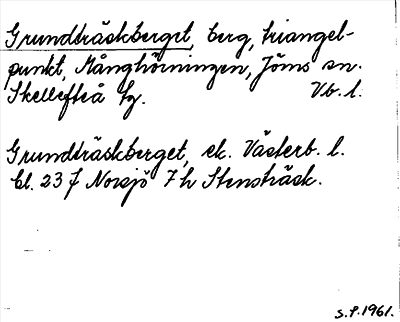 Grundträskberget, berg, triangel-
punkt, Månghörningen, Jörns sn.
Skellefteå tg. Vb. l.
Grundträskberget, ek. Västerb. l.
bl. 23 J Norsjö 7 h Stensträsk.
S.P. 1961.